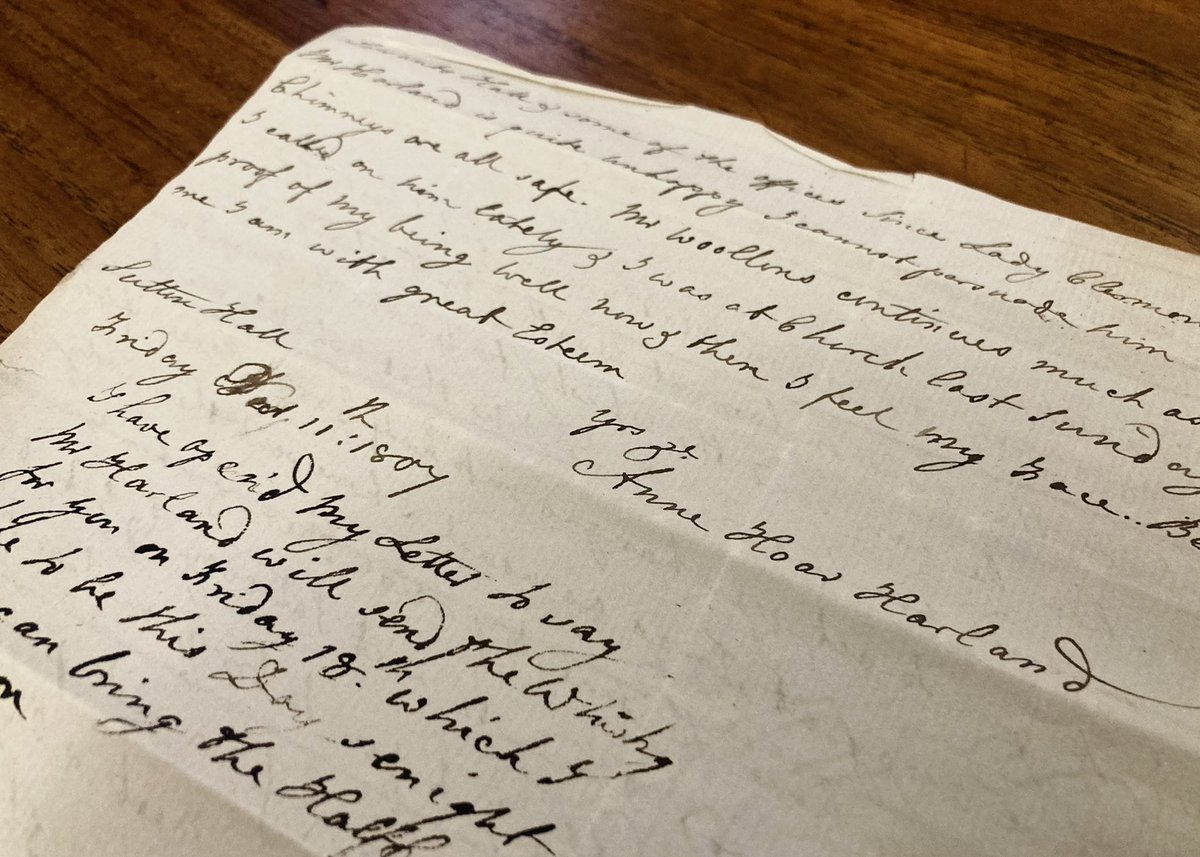 Hall & some of the offices since Lady
Mr Harland is quite unhappy I cannot persuade him
Chimneys are all safe. Mr Woollons continues much as
I called on him lately & I was at Church last Sunday
proof of my being well now & then I feel my Face.. Be
me I am with great Esteem
yrs &c.
Anne Hoar Harland
Sutton Hall
Friday Decr. 11th: 1807
I have open'd my Letter to say
Mr Harland will send the Whisky
for you on Friday 18th. which I
to be this Day senight
can bring the Half